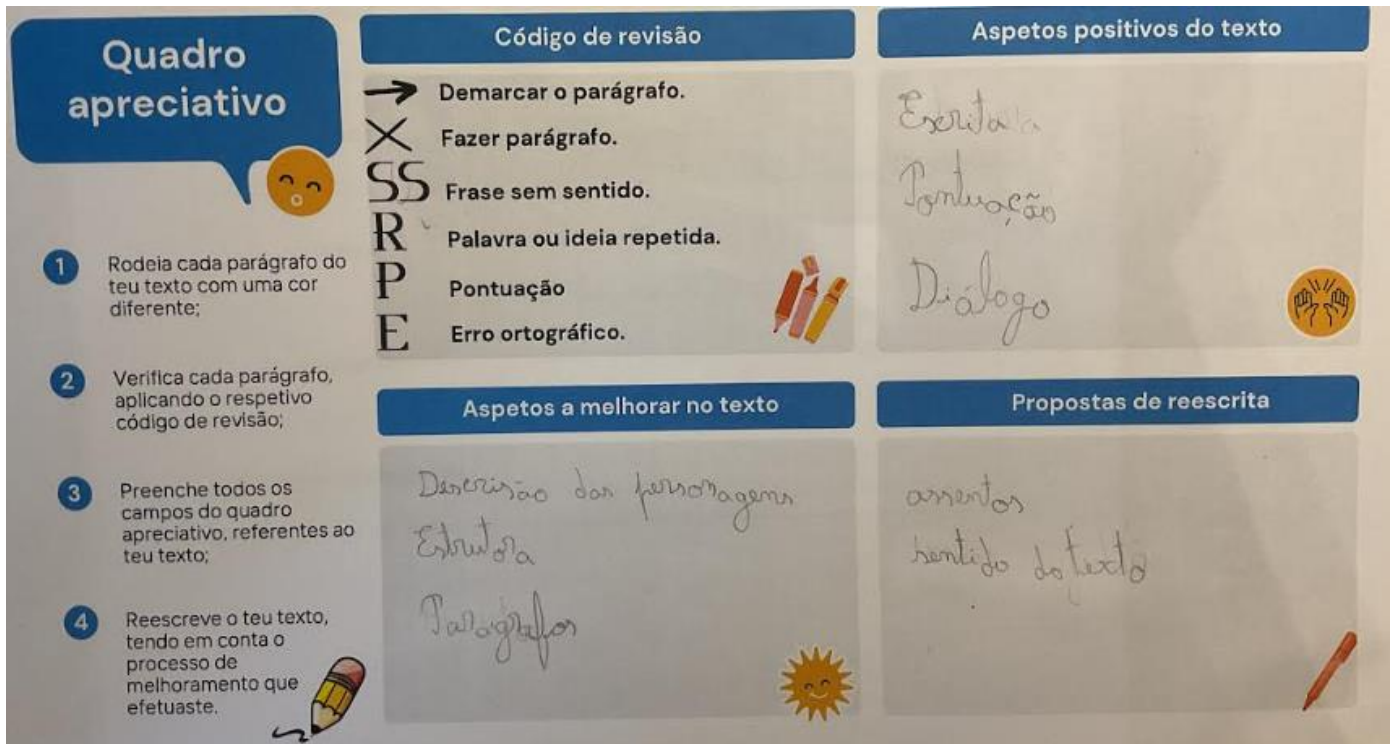 Quadro
apreciativo
1
Rodeia cada parágrafo do
teu texto com uma cor
diferente;
2
Verifica cada parágrafo,
aplicando o respetivo
código de revisão;
3
Preenche todos os
campos do quadro
apreciativo, referentes ao
teu texto;
4
Reescreve o teu texto,
tendo em conta o
processo de
melhoramento que
efetuaste.
Código de revisão
→ Demarcar o parágrafo.
X Fazer parágrafo.
SS Frase sem sentido.
R Palavra ou ideia repetida.
P Pontuação
E Erro ortográfico.
Aspetos positivos do texto
Escrita
Pontuação
Diálogo
Aspetos a melhorar no texto
Descrisão das personagens
Estrutora
Paragrafos
Propostas de reescrita
assentos
sentido do texto